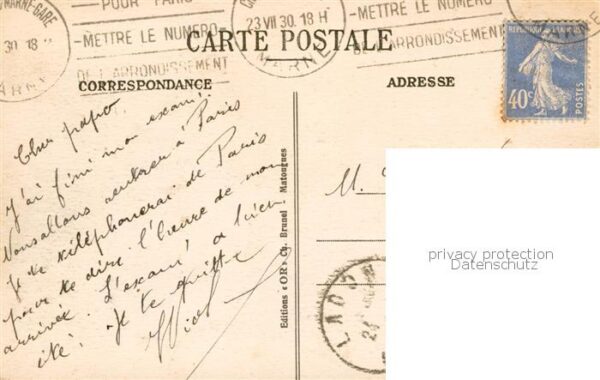 MARNE-GARE
30 18
ARNE
POUR PARIS
METTRE LE NUMÉRO
DE L'ARRONDISSEMENT
23 VII 30. 18 H
MARNE
METTRE LE NUMÉRO
DE L'ARRONDISSEMENT
CARTE POSTALE
CORRESPONDANCE
ADRESSE
40c
POSTES
Cher papa.
J'ai fini mon exam.
Nous allons rentrer à Paris
Je te téléphonerai de Paris
pour te dire l'heure de mon
arrivée. L'exam' a bien
été. Je te quitte
Editions «OR» Ch. Brunel - Matougues
M.
privacy protection
Datenschutz
LADON